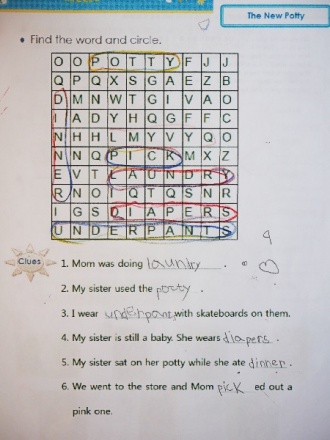 The New Potty
Find the word and circle.
O O P O T T Y F J J
Q P Q X S G A E Z B
D M N W T G I V A O
I A D Y H Q G F F C
N H H L M Y V Y Q O
N N Q P I C K M X Z
E V T L A U N D R Y
R N O I Q T Q S N R
I G S D I A P E R S
U N D E R P A N T S
Clues
1. Mom was doing laundry.
2. My sister used the potty.
3. I wear underpants with skateboards on them.
4. My sister is still a baby. She wears diapers.
5. My sister sat on her potty while she ate dinner.
6. We went to the store and Mom pick ed out a
pink one.